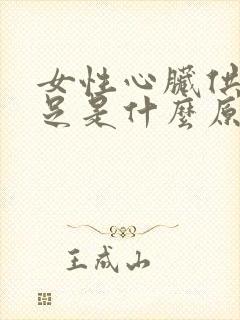 女性心臟供
足是什麼原
王成山